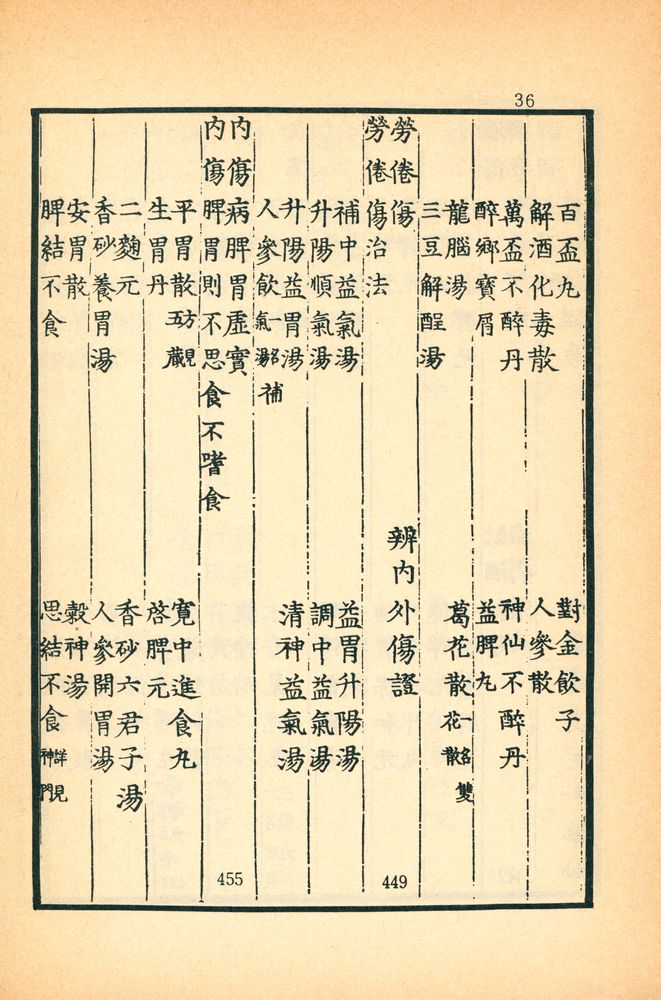 36
百盃丸
對金飮子
解酒化毒散
人參散
萬盃不醉丹
神仙不醉丹
醉鄕寶屑
益脾丸
龍腦湯
葛花散一名雙花散
三豆解酲湯
勞倦傷
辨內外傷證
449
勞倦傷治法
補中益氣湯
益胃升陽湯
升陽順氣湯
調中益氣湯
升陽益胃湯
淸神益氣湯
人參飮一名補氣湯
內傷病脾胃虛實
455
內傷脾胃則不思食不嗜食
平胃散五方藏見
寬中進食丸
生胃丹
啓脾元
二麴元
香砂六君子湯
香砂養胃湯
人參開胃湯
安胃散
穀神湯
脾結不食
思結不食詳見神門